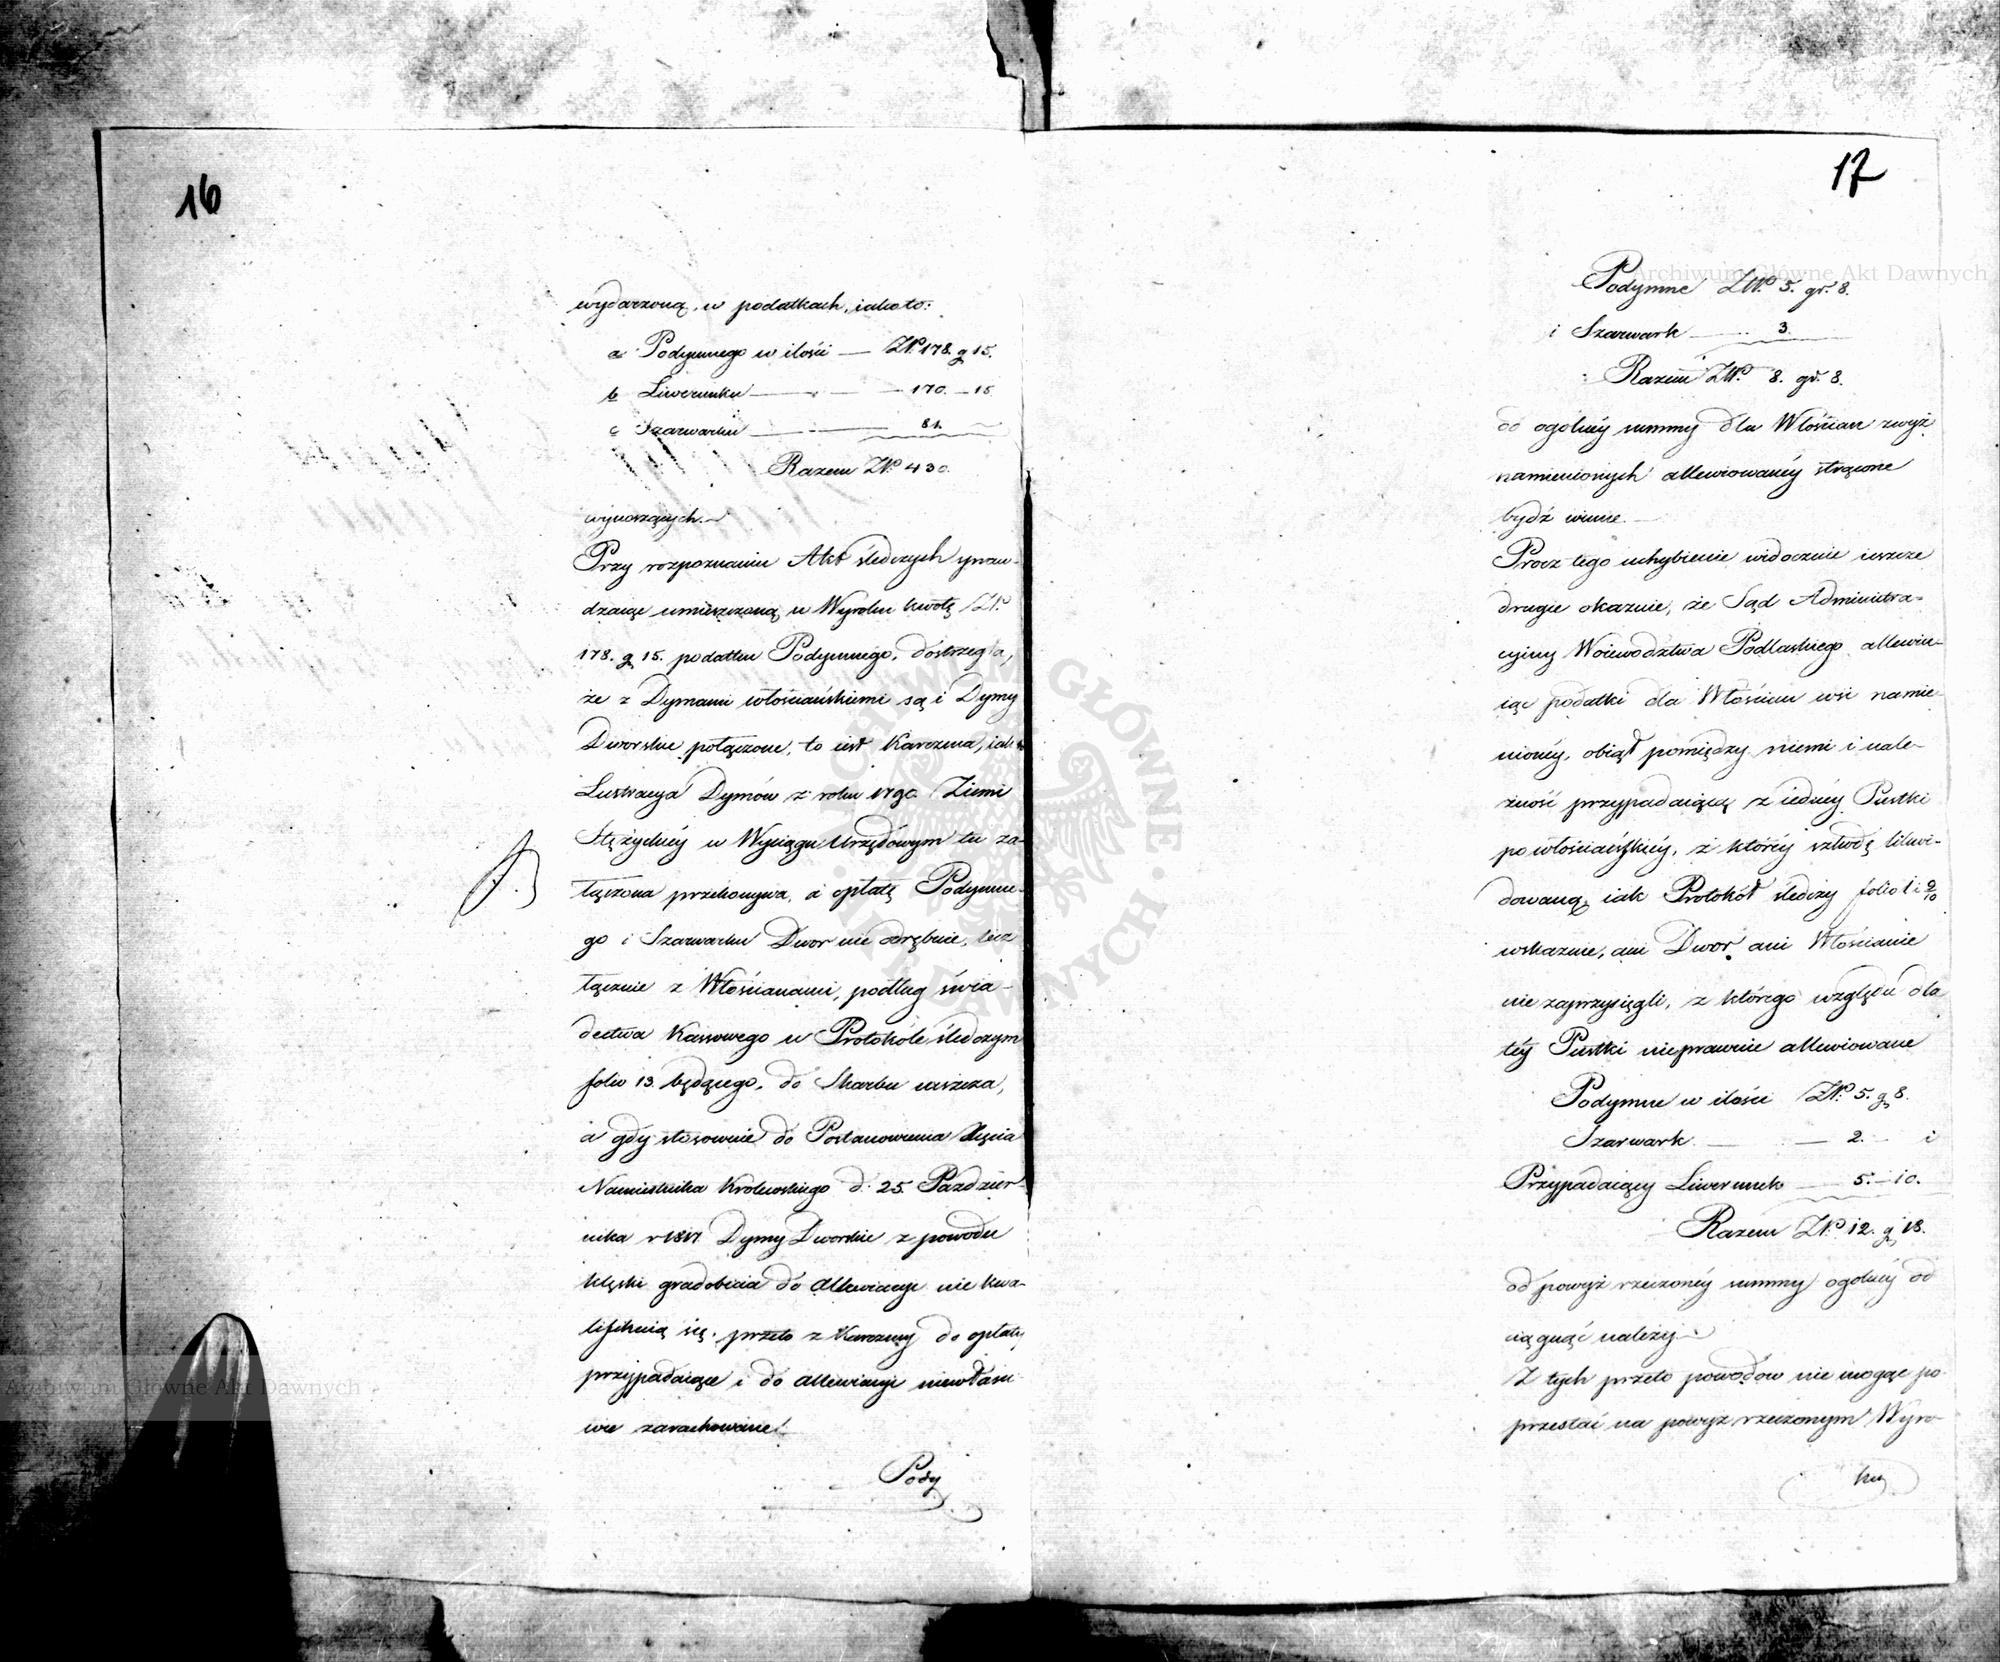 16
wydarzoną, w podatkach, iako to:
a Podymnego w ilości — ZłP. 178. g 15.
b Liwerunku — 170. — 15
c Szarwarku — 81.
Razem ZłP. 430.
wynoszących.
Przy rozpoznaniu Akt śledczych spraw-
dzaiąc umieszczoną w Wyroku kwotę ZłP.
178. g 15. podatku Podymnego, dostrzegła,
że z Dymami włościańskiemi są i Dymy
Dworskie połączone, to iest Karczma, iak
Lustracya Dymów z roku 1790 Ziemi
Stężyckiéy w Wyciągu Urzędowym tu za-
łączona przekonywa, a opłatę Podymne-
go i Szarwarku Dwor nie odrębnie, lecz
łącznie z Włościanami, podług świa-
dectwa Kassowego w Protokóle śledczym
folio 13. będącego, do Skarbu uiszcza,
a gdy stosownie do Postanowienia Xięcia
Namiestnika Krolewskiego d. 25. Paździer-
nika r 1817 Dymy Dworskie z powodu
klęski gradobicia do allewiacyi nie kwa-
lifikuią się, przeto z Karczmy do opłaty
przypadaiące i do allewiacyi niewłaści-
wie zarachowane
Pody
17
Podymne ZłP. 5. gr. 8.
i Szarwark — 3.
Razem ZłP. 8. gr. 8.
od ogólnéy summy dla Włościan zwyż
namienionych allewiowanéy strącone
bydź winne.
Procz tego uchybienie widocznie ieszcze
drugie okazuie, że Sąd Administra-
cyiny Woiewodztwa Podlaskiego allewiu-
iąc podatki dla Włościan wsi namie-
nionéy, obiął pomiędzy niemi i nale-
żność przypadaiącą z iednéy Pustki
po włościańskiéy, z któréy szkodę likwi-
dowaną, iak Protokół śledczy folio 1 i 9/10
wskazuie, ani Dwor, ani Włościanie
nie zaprzysięgli, z którego względu dla
téy Pustki nieprawnie allewiowane
Podymne w ilości ZłP. 5. g 8.
Szarwark — 2. i
Przypadaiący Liwerunek — 5. — 10.
Razem ZłP. 12. g 18.
od powyż rzeczonéy summy ogólnéy od
ciągnąć należy.
Z tych przeto powodow nie mogąc po-
przestać na powyż rzeczonym Wyro-
ku
Archiwum Główne Akt Dawnych
Archiwum Główne Akt Dawnych